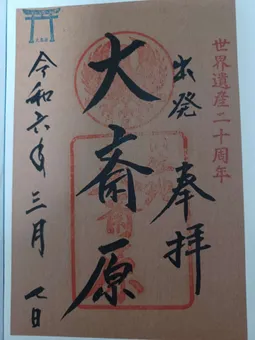 世界遺産二十周年
出発
奉拝
大斎原
令和六年三月七日